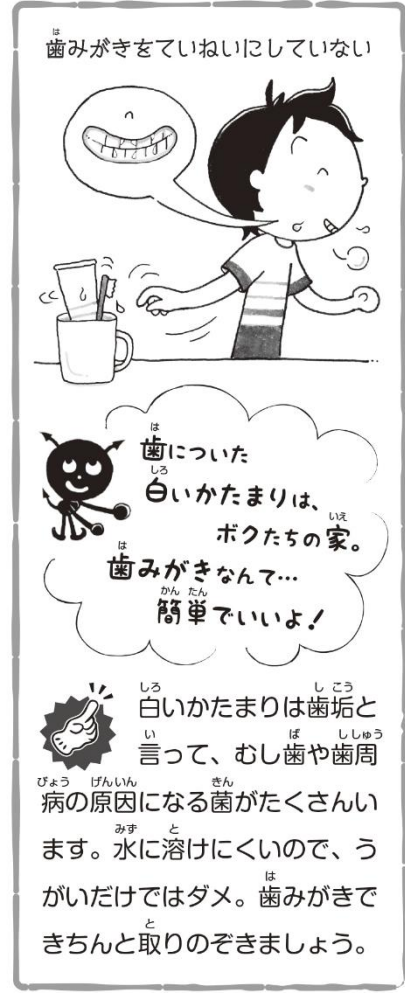 歯みがきをていねいにしていない
歯についた
白いかたまりは、
ボクたちの家。
歯みがきなんて…
簡単でいいよ！
白いかたまりは歯垢と
言って、むし歯や歯周
病の原因になる菌がたくさんい
ます。水に溶けにくいので、う
がいだけではダメ。歯みがきで
きちんと取りのぞきましょう。